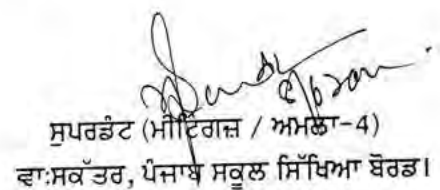 ਸੁਪਰਡੰਟ (ਮੀਟਿੰਗਜ਼ / ਅਮਲਾ-4)
ਵਾ:ਸਕੱਤਰ, ਪੰਜਾਬ ਸਕੂਲ ਸਿੱਖਿਆ ਬੋਰਡ।